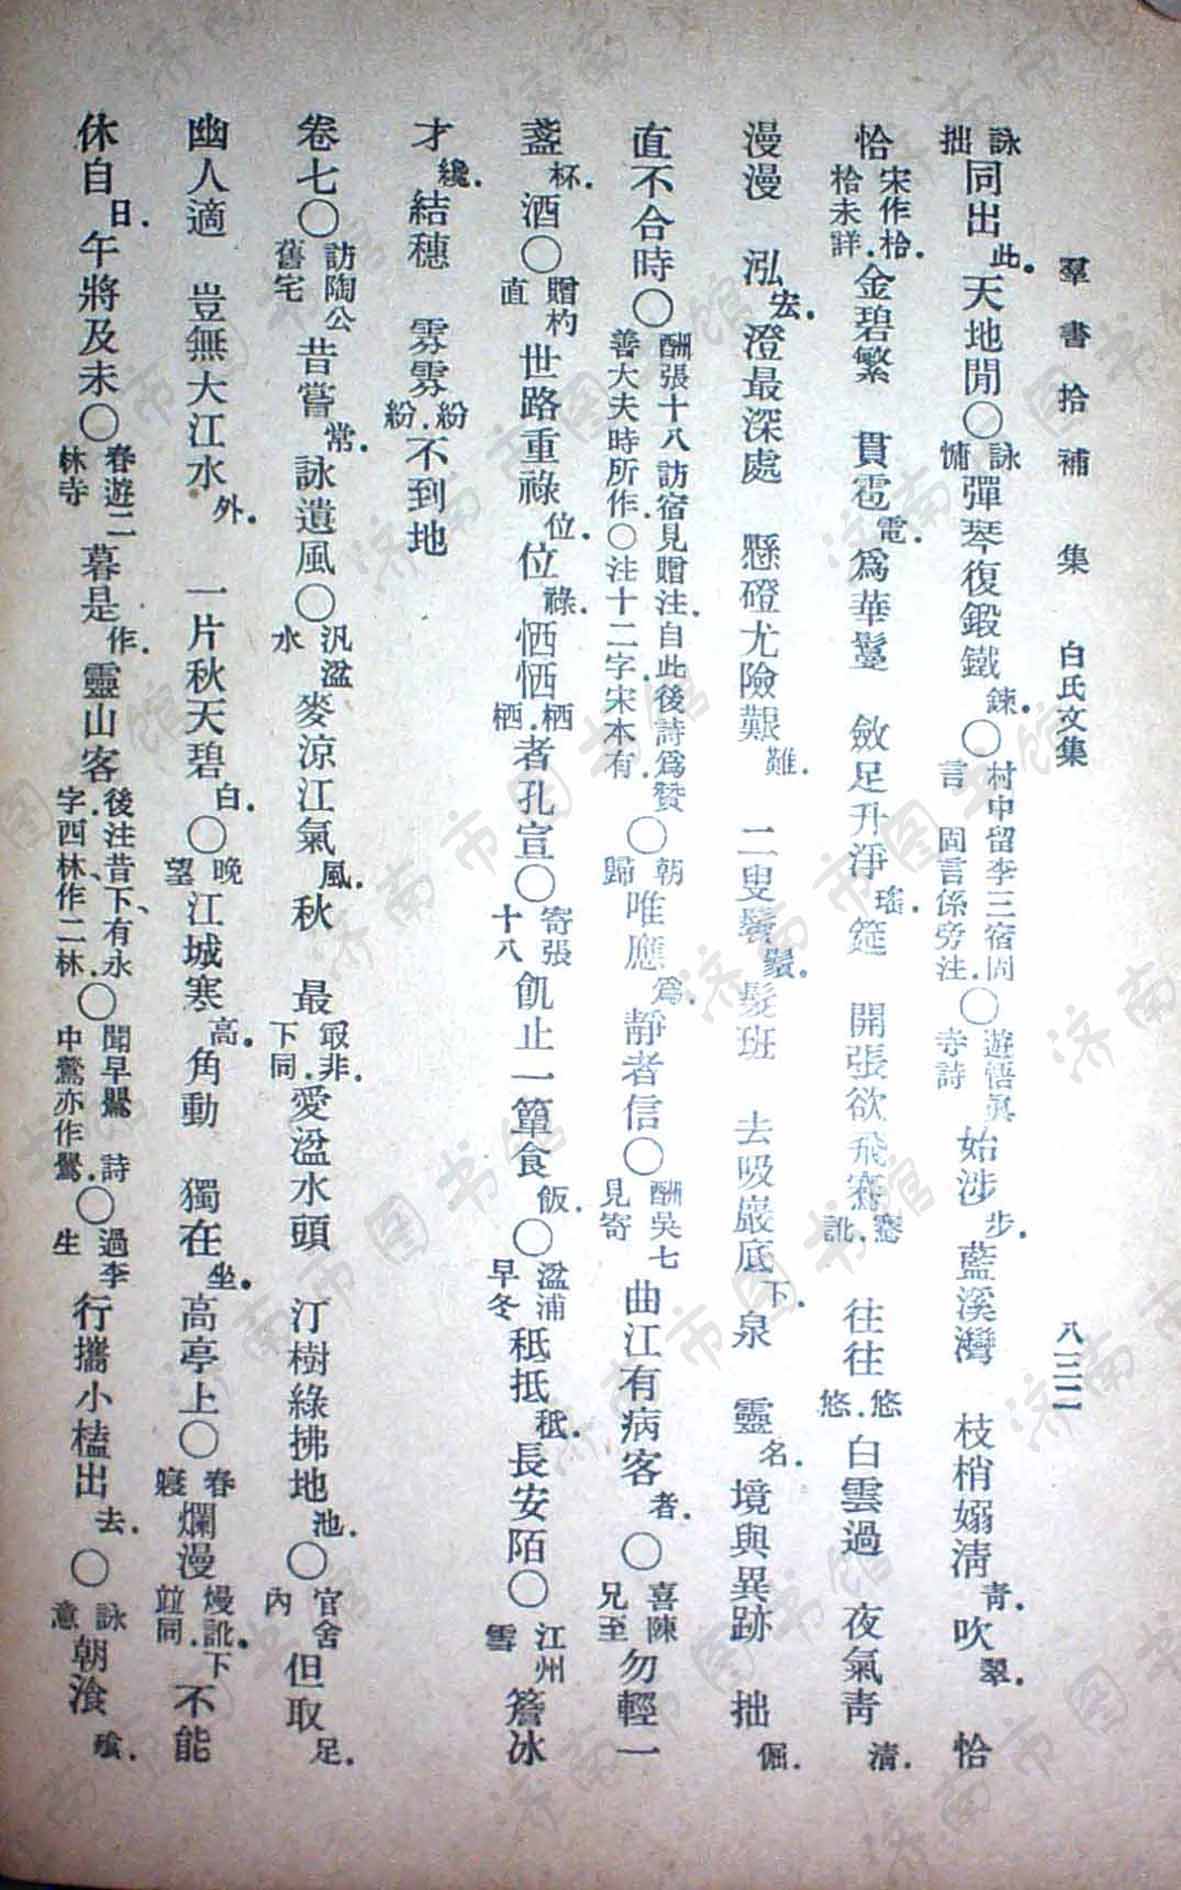 羣書拾補 集 白氏文集 八三二
詠拙 同出此。天地閒〇詠慵 彈琴復鍛鐵鍊。〇村中留李三宿固言 固言係旁注。〇遊悟眞寺詩 始涉步。藍溪灣 枝梢嫋淸靑。吹翠。 恰
恰宋作枱。枱未詳。金碧繁 貫雹電。爲華鬘 斂足升淨瑤。筵 開張欲飛騫鶱訛。 往往悠悠。白雲過 夜氣靑清。
漫漫 泓宏。澄最深處 懸磴尤險艱難。 二叟鬚鬢。髮班 去吸巖底下。泉 靈名。境與異跡 拙倔。
直不合時〇酬張十八訪宿見贈注。自此後詩爲贊善大夫時所作。〇注十二字宋本有。〇朝歸 唯應爲。靜者信〇酬吳七見寄 曲江有病客者。〇喜陳兄至 勿輕一
盞杯。酒〇贈杓直 世路重祿位。位祿。恓恓栖栖。者孔宣〇寄張十八 飢止一簞食飯。〇湓浦早冬 秖抵秖。長安陌〇江州雪 簷冰
才纔。結穗 雰雰紛紛。不到地
卷七〇訪陶公舊宅 昔嘗常。詠遺風〇汎湓水 麥涼江氣風。秋 最冣非。下同。愛湓水頭 汀樹綠拂地池。〇官舍內 但取足。
幽人適 豈無大江水外。 一片秋天碧白。〇晚望 江城寒高。角動 獨在坐。高亭上〇春寢 爛漫熳訛。下竝同。不能
休自日。午將及未〇春遊二林寺 暮是作。靈山客後注昔下、有永字。四林、作二林。〇聞早鶯 詩中鶯亦作鸎。〇過李生 行攜小榼出去。〇詠意 朝飡飱。